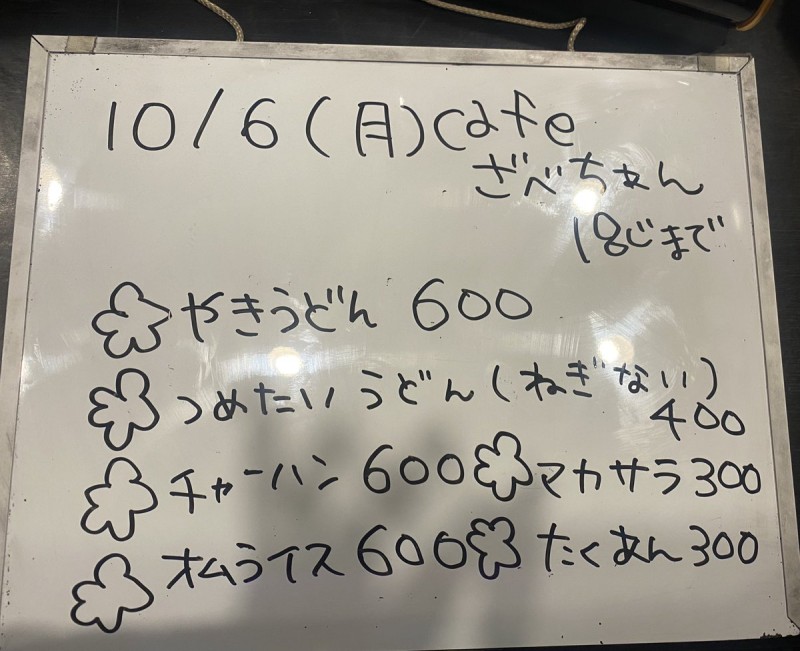 10/6(月)cafe
ざべちゃん
18じまで
やきうどん 600
つめたいうどん(ねぎない)
400
チャーハン 600 マカサラ 300
オムライス 600 たくあん 300